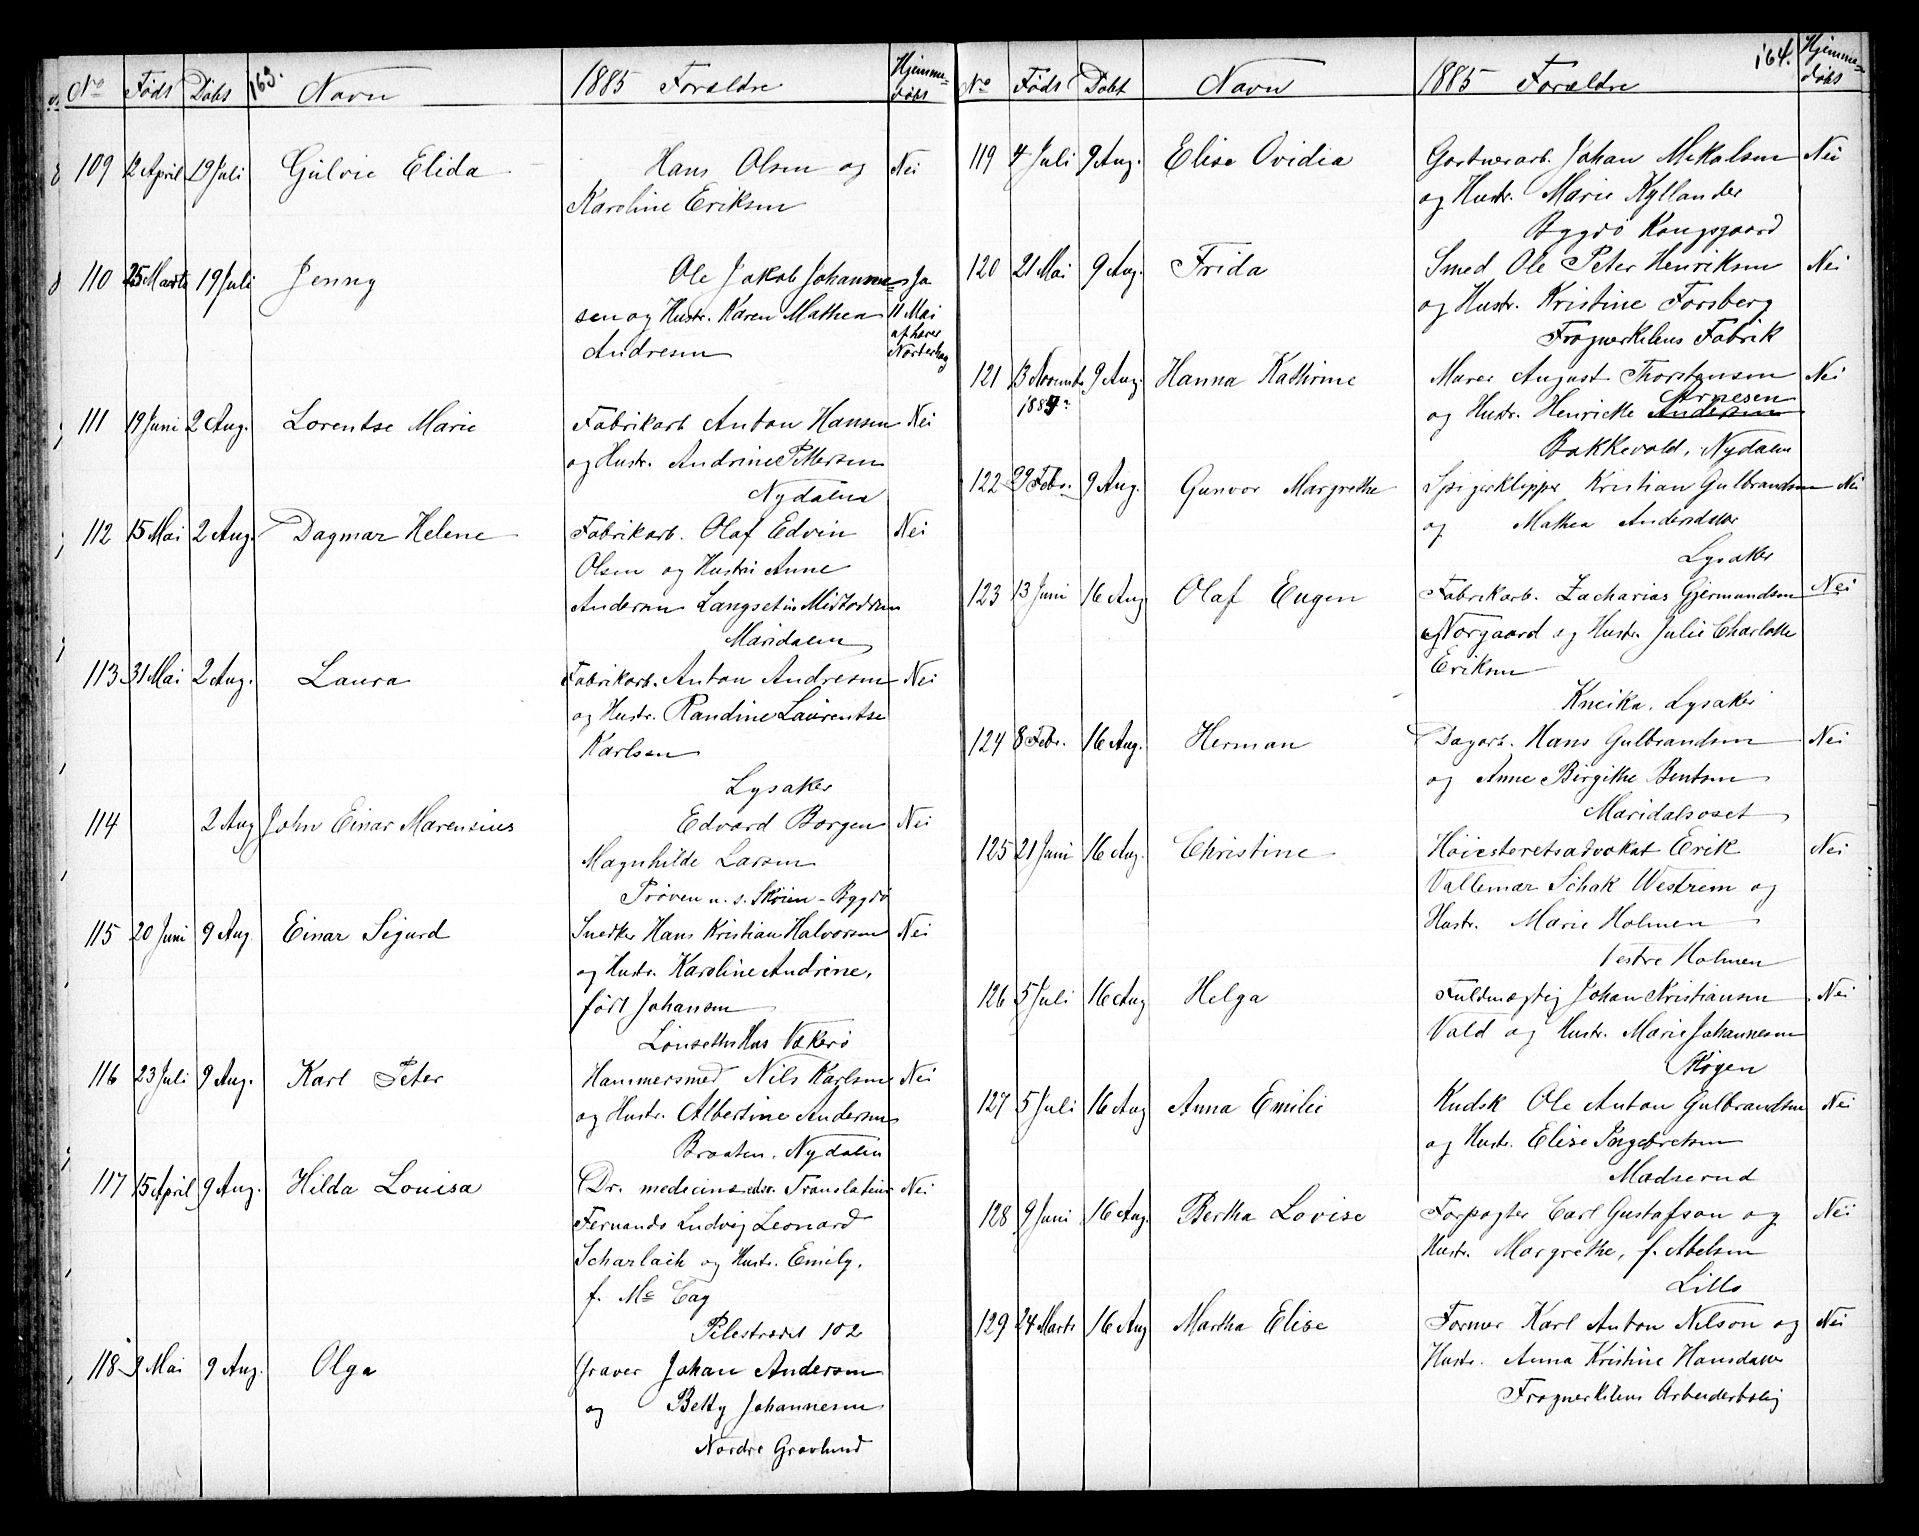 No Føds Døbt 163. Navn 1885 Forældre Hjemmedøbt
109 12 April 19 Juli Gulvie Elida Hans Olsen og Nei
Karoline Eriksen
110 25 Marts 19 Juli Jenny Ole Jakob Johanne= Ja
sen og Hustr. Karen Mathea 11 Mai
Andresen
111 19 Juni 2 Aug. Lorentse Marie Fabrikarb. Anton Hansen Nei
og Hustr. Andrine Pettersen
Nydalen
112 15 Mai 2 Aug. Dagmar Helene Fabrikarb. Olaf Edvin Nei
Olsen og Hustru Anne
Andersen Langsetin Midtodden
Maridalen
113 31 Mai 2 Aug. Laura Fabrikarb. Anton Andresen Nei
og Hustr. Randine Laurentse
Karlsen
Lysaker
114 2 Aug John Einar Marensius Edvard Borgen Nei
Magnhilde Larsen
Prøven u. s. Skøien - Bygdø
115 20 Juni 9 Aug Einar Sigurd Snedker Hans Kristian Halvorsen Nei
og Hustr. Karoline Andrine,
født Johansen
Lönseths Hus Vækerö
116 23 Juli 9 Aug. Karl Peter Hammersmed Nils Karlsen Nei
og Hustr. Albertine Andersen
Braaten. Nydalen
117 15 April 9 Aug. Hilda Louisa Dr. medecinæ edv. Translatiur Nei
Fernando Ludvig Leonard
Scharlach og Hustr. Emily.
f. Mc Cay
Pilestrædet 102
118 3 Mai 9 Aug. Olga Graver Johan Andersen
og Betty Johannesen
Nordre Gravlund
No Føds Døbt Navn 1885 Forældre 164. Hjemme=døbt
119 4 Juli 9 Aug. Elise Ovidia Gartnerarb. Johan Mikalsen Nei
og Hustr. Marie Kyllander
Bygdö Kongsgaard
120 21 Mai 9 Aug. Frida Smed Ole Peter Henriksen Nei
og Hustr. Kristine Forsberg
Frognerkilens Fabrik
121 13 Novembr 9 Aug. Hanna Kathrine Murer August Thorstensen Nei
1884 Arnesen
og Hustr. Henrikke Andersen
Bakkevold, Nydalen
122 22 Febr. 9 Aug. Gunvor Margrethe Spigerklipper Kristian Gulbrandsen Nei
og Mathea Andersdatter
Lysaker
123 13 Juni 16 Aug Olaf Eugen Fabrikarb. Zacharias Gjermundsen Nei
Norgaard og Hustr. Julie Charlotte
Eriksen
Kneika. Lysaker
124 8 Febr. 16 Aug. Herman Dagarb. Hans Gulbrandsen Nei
og Anne Birgithe Bentsen
Maridalsoset
125 21 Juni 16 Aug. Christine Høiesteretsadvokat Erik Nei
Vallemar Schak Westrem og
Hustr. Marie Holmen
Vestre Holmen
126 5 Juli 16 Aug Helga Fuldmægtig Johan Kristiansen Nei
Vold og Hustr. Marie Johannesen
Skøyen
127 5 Juli 16 Aug Anna Emilie Kudsk Ole Anton Gulbrandsen Nei
og Hustr. Elise Ingebretsen
Madserud
128 9 Juni 16 Aug. Bertha Lovise Forpagter Carl Gustafson og Nei
Hustr. Margrethe, f. Abelsen
Lillo
129 24 Marts 16 Aug Martha Elise Former Karl Anton Nilson og Nei
Hustr. Anna Kristine Hansdatter
Frognerkilens Arbeiderbolig